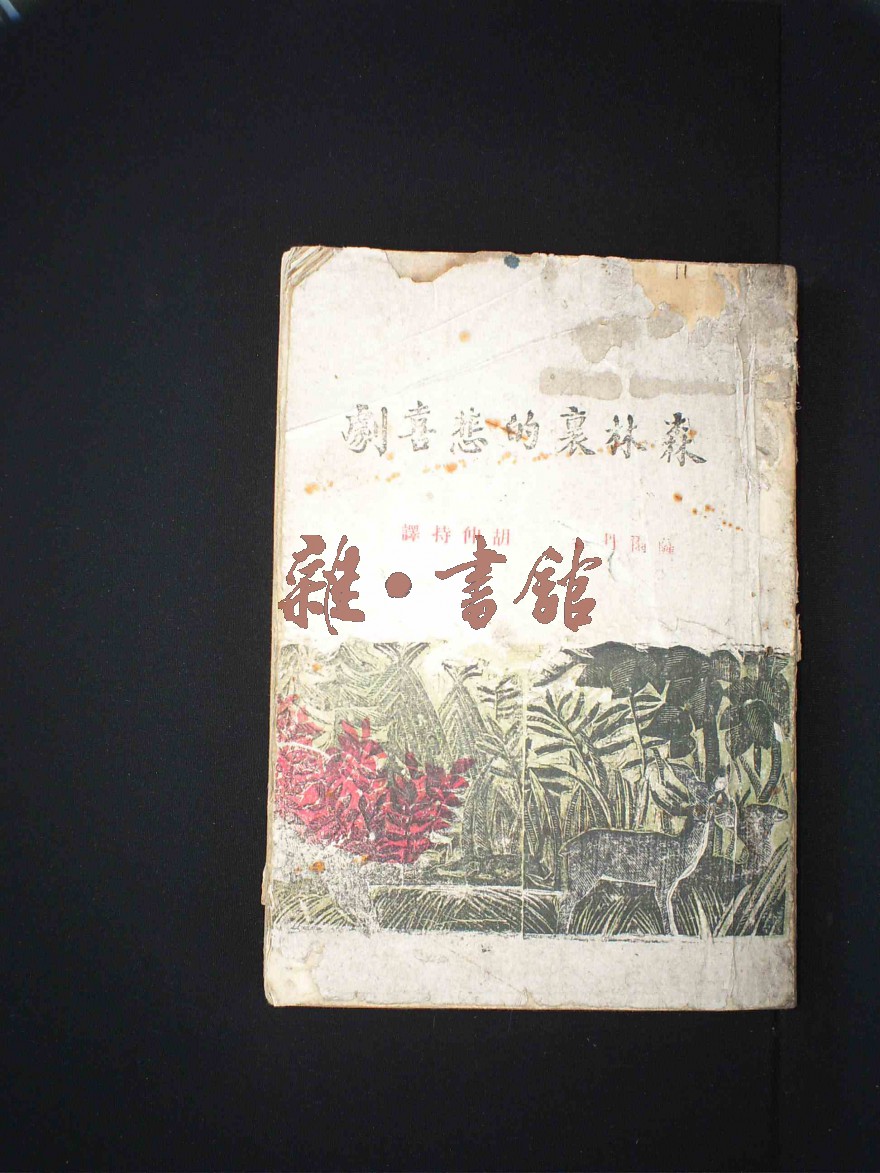 森林裏的悲喜劇
薩爾丹 胡仲持譯
雜·書館